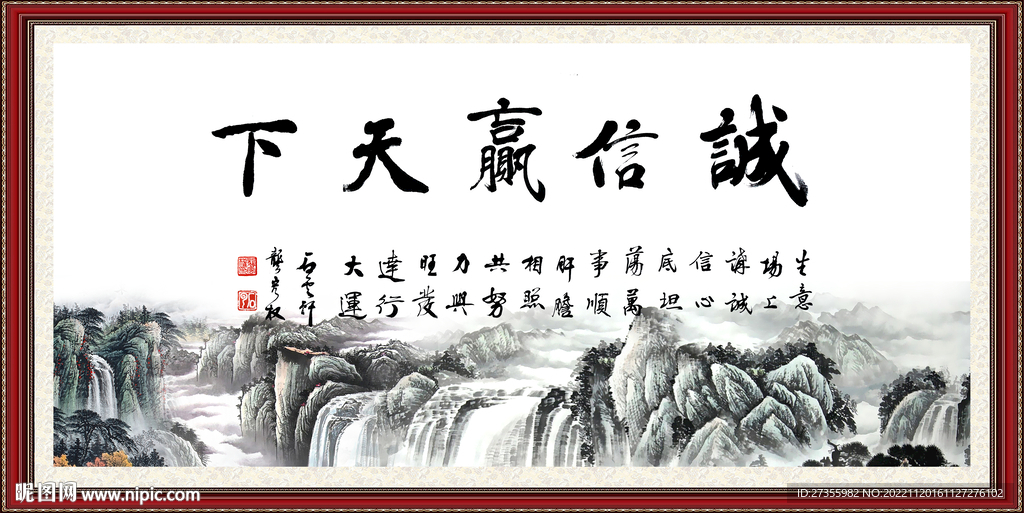 誠信贏天下
生意
場上
講誠
信心
底坦
蕩萬
事順
肝膽
相照
共努
力興
旺發
達行
大運
昵图网 www.nipic.com
ID:27355982 NO:20221120161127276102